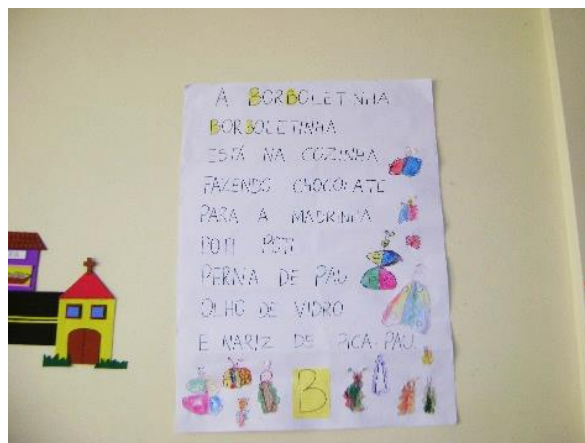 A BORBOLETINHA
BORBOLETINHA
ESTÁ NA COZINHA
FAZENDO CHOCOLATE
PARA A MADRINHA
POTI POTI
PERNA DE PAU
OLHO DE VIDRO
E NARIZ DE PICA PAU.
B